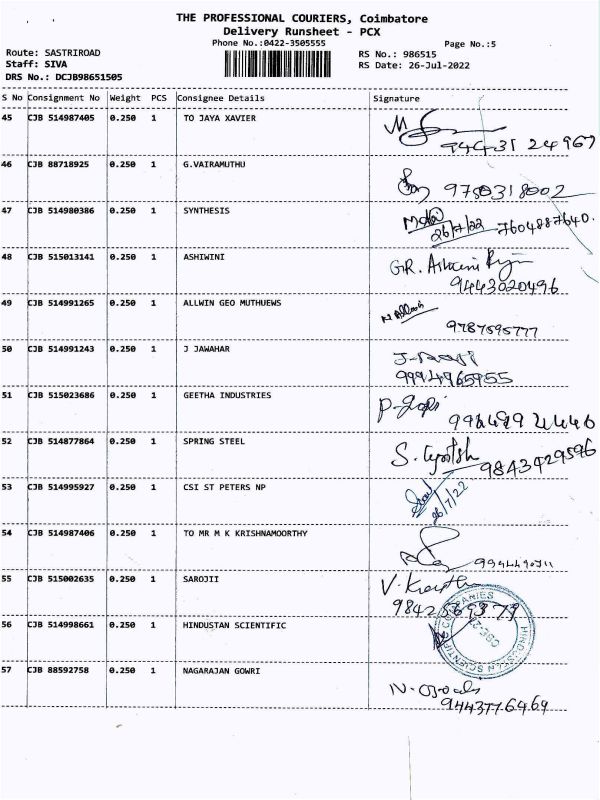 THE PROFESSIONAL COURIERS, Coimbatore
Delivery Runsheet - PCX
Phone No.:0422-3505555
Page No.:5
Route: SASTRIROAD
RS No.: 986515
Staff: SIVA
RS Date: 26-Jul-2022
DRS No.: DCJB98651505
S No Consignment No Weight PCS Consignee Details Signature
45 CJB 514987405 0.250 1 TO JAYA XAVIER
94431 24967
46 CJB 88718925 0.250 1 G.VAIRAMUTHU
9750318002
47 CJB 514980386 0.250 1 SYNTHESIS
26/7/22 7604887640.
48 CJB 515013141 0.250 1 ASHIWINI
G.R.
9443020496
49 CJB 514991265 0.250 1 ALLWIN GEO MUTHUEWS
9787595777
50 CJB 514991243 0.250 1 J JAWAHAR
9994965955
51 CJB 515023686 0.250 1 GEETHA INDUSTRIES
P. Gopi
52 CJB 514877864 0.250 1 SPRING STEEL
S.
9843429596
53 CJB 514995927 0.250 1 CSI ST PETERS NP
26/7/22
54 CJB 514987406 0.250 1 TO MR M K KRISHNAMOORTHY
55 CJB 515002635 0.250 1 SAROJII
V.
9842569379
56 CJB 514998661 0.250 1 HINDUSTAN SCIENTIFIC
HINDUSTAN SCIENTIFIC COMPANIES
CBE-2
57 CJB 88592758 0.250 1 NAGARAJAN GOWRI
9443776469